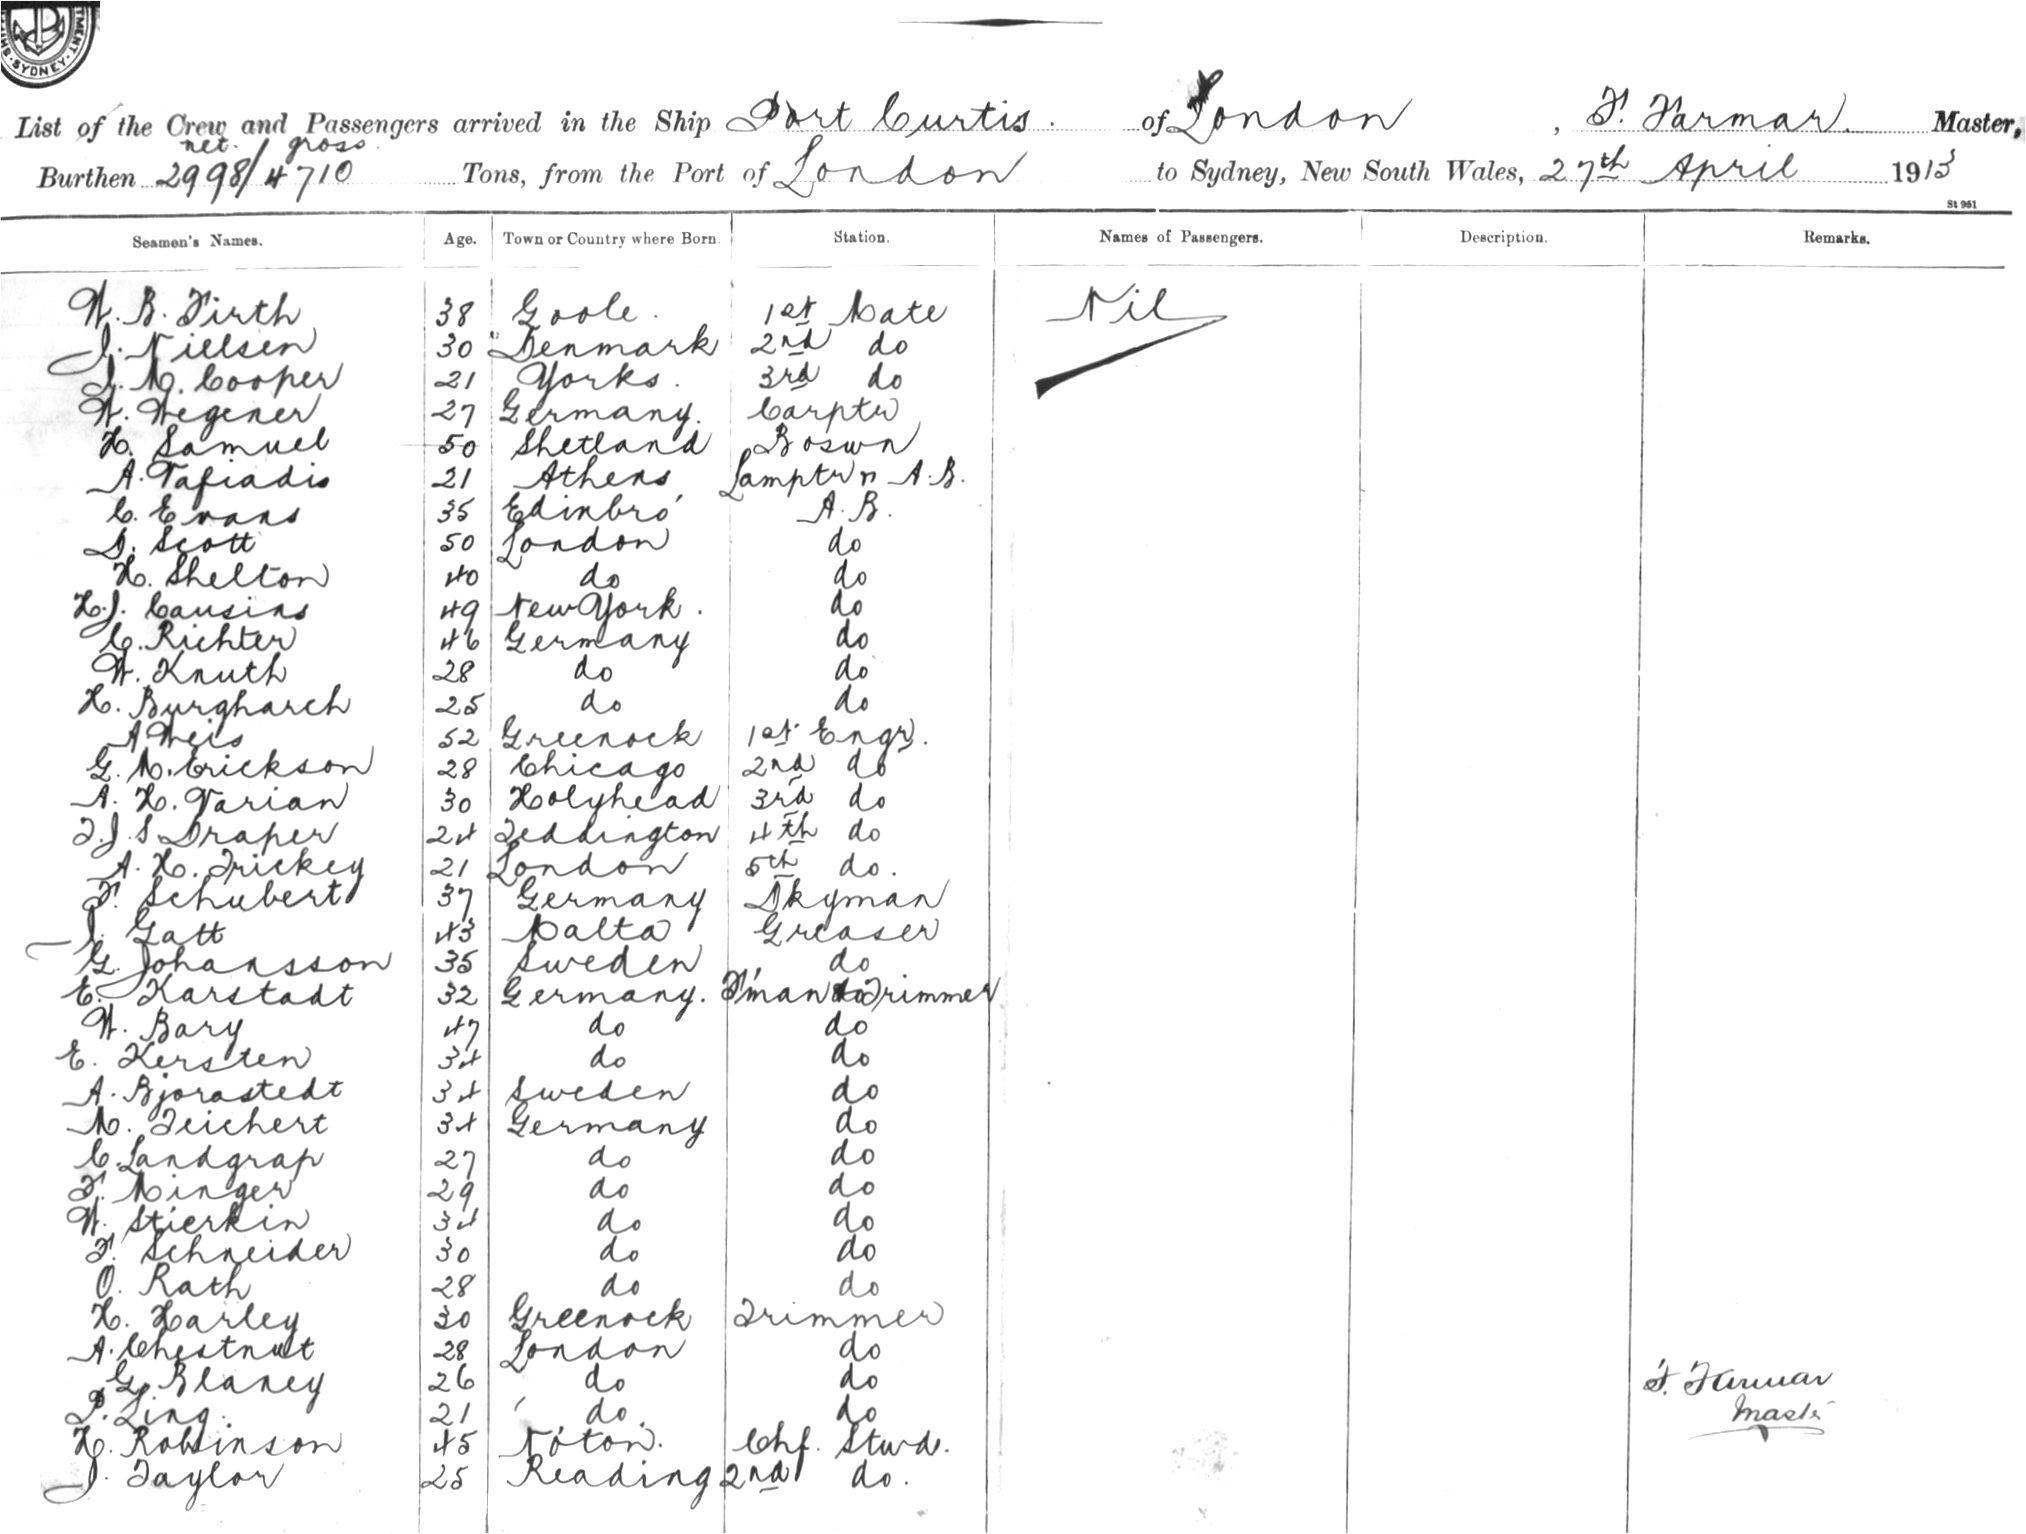 TMENT · SYDNEY · SHI
List of the Crew and Passengers arrived in the Ship Port Curtis. of London, F. Farmar Master,
net. gross
Burthen 2998/4710 Tons, from the Port of London to Sydney, New South Wales, 27th April 1913
St 951
Seamen's Names. Age. Town or Country where Born. Station. Names of Passengers. Description. Remarks.
W. B. Firth 38 Goole. 1st Mate Nil
J. Nielsen 30 Denmark 2nd do
J. M. Cooper 21 Yorks. 3rd do
W. Wegener 27 Germany. Carptr
H. Samuel 50 Shetland Boswn
A. Tafiadis 21 Athens Lamptr n A.B.
C. Evans 35 Edinbro' A.B.
D. Scott 50 London do
H. Shelton 40 do do
H.J. Causins 49 New York. do
C. Richter 46 Germany do
W. Knuth 28 do do
H. Burgharch 25 do do
A Weis 52 Greenock 1st Engr.
G. M. Erickson 28 Chicago 2nd do
A. H. Varian 30 Holyhead 3rd do
T. J. S. Draper 24 Teddington 4th do
A. H. Trickey 21 London 5th do.
F. Schubert 37 Germany Dkyman
J. Gatt 43 Malta Greaser
G. Johansson 35 Sweden do
E. Karstadt 32 Germany. F'man Trimmer
W. Bary 47 do do
E. Kersten 34 do do
A. Bjorastedt 34 Sweden do
M. Teichert 34 Germany do
C. Landgrap 27 do do
F. Minger 29 do do
W. Stierkin 34 do do
F. Schneider 30 do do
O. Rath 28 do do
H. Harley 30 Greenock Trimmer
A. Chestnut 28 London do
G. Blaney 26 do do F. Farmar
P. Ling. 21 do. do Master
H. Robinson 45 N'oton. Chf. Stwd.
J. Taylor 25 Reading 2nd do.